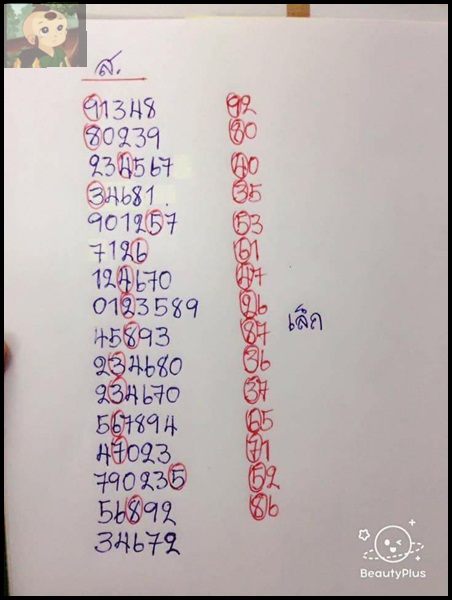 ส.
91348 92
80239 80
234567 40
34681. 35
901257 53
7126 61
124670 47
0123589 26
45893 87
เล็ก
234680 36
234670 37
567894 65
47023 71
790235 52
56892 86
34672
BeautyPlus